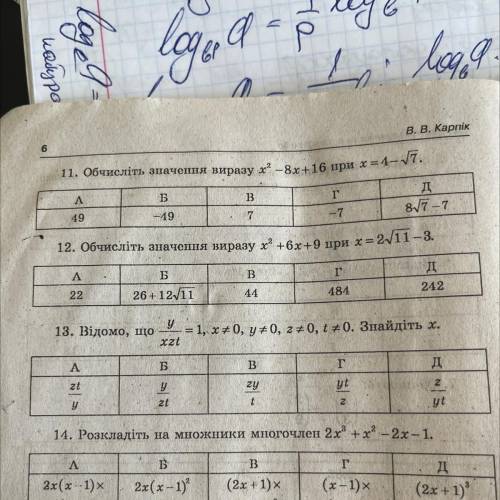 log_{b^p} a = 1/p log_b
log_b a =
1 log_b a
6
В. В. Карпік
11. Обчисліть значення виразу x² −8x+16 при x=4−√7.
А Б В Г Д
49 −49 7 −7 8√7−7
12. Обчисліть значення виразу x² +6x+9 при x=2√11−3.
А Б В Г Д
22 26+12√11 44 484 242
13. Відомо, що y/xzt = 1, x≠0, y≠0, z≠0, t≠0. Знайдіть x.
А Б В Г Д
zt/y y/zt zy/t yt/z z/yt
14. Розкладіть на множники многочлен 2x³ +x² −2x−1.
А Б В Г Д
2x(x−1)× 2x(x−1)² (2x+1)× (x−1)× (2x+1)³